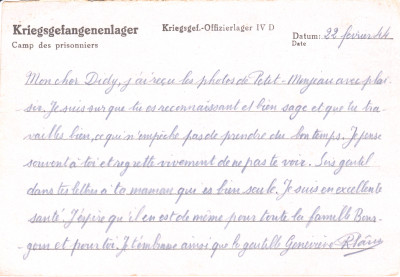 Kriegsgefangenenlager
Camp des prisonniers
Kriegsgef.-Offizierlager IV D
Datum: 22 février 44
Date
Mon cher Dédy, j'ai reçu les photos de Petit-Monjeau avec plai-
sir. Je suis sur que tu es reconnaissant et bien sage et que tu tra-
vailles bien, ce qui n'empêche pas de prendre du bon temps. Je pense
souvent à toi et regrette vivement de ne pas te voir. Sois gentil
dans tes lettres à ta maman qui es bien seule. Je suis en excellente
santé. J'espère qu'il en est de même pour toute la famille
et pour toi. Je t'embrasse ainsi que la gentille Geneviève